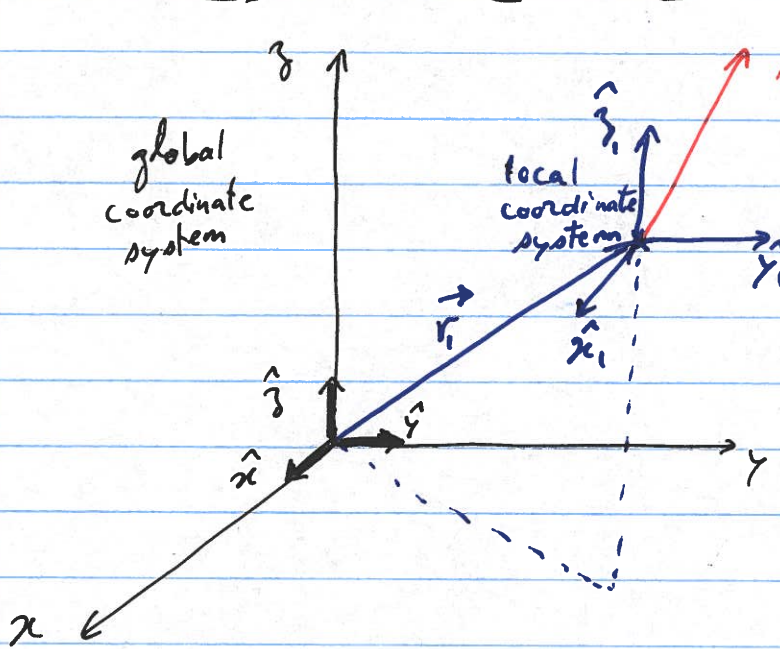 z
global
coordinate
system
ẑ₁
local
coordinate
system
ŷ₁
x̂₁
r⃗₁
ẑ
ŷ
x̂
y
x